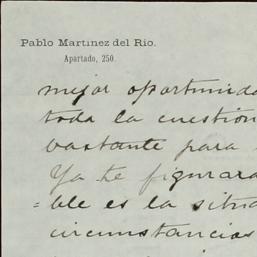 Pablo Martinez del Rio.
Apartado, 250.
mejor oportunid
toda la cuestión
bastante para
Ya te figurará
=ble es la situa
circunstancias